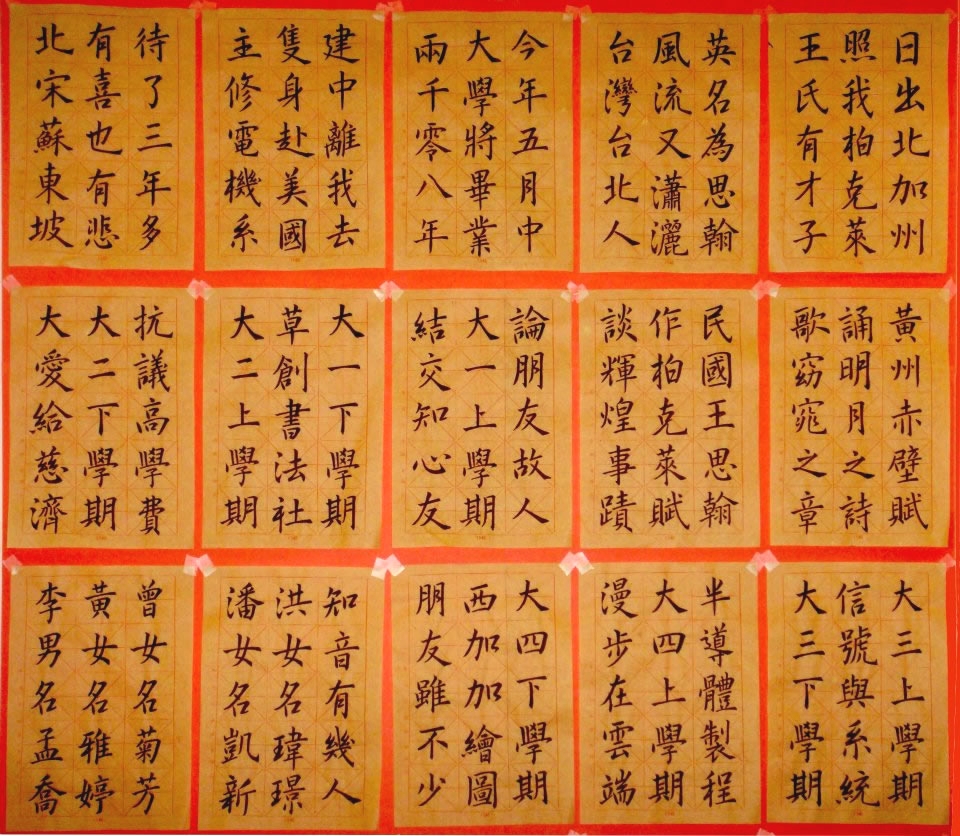 日出北加州
照我柏克萊
王氏有才子
英名為思翰
風流又瀟灑
台灣台北人
今年五月中
大學將畢業
兩千零八年
建中離我去
隻身赴美國
主修電機系
待了三年多
有喜也有悲
北宋蘇東坡
黃州赤壁賦
誦明月之詩
歌窈窕之章
民國王思翰
作柏克萊賦
談輝煌事蹟
論朋友故人
大一上學期
結交知心友
大一下學期
草創書法社
大二上學期
抗議高學費
大二下學期
大愛給慈濟
大三上學期
信號與系統
大三下學期
半導體製程
大四上學期
漫步在雲端
大四下學期
西加加繪圖
朋友雖不少
知音有幾人
洪女名瑋璟
潘女名凱新
曾女名菊芳
黃女名雅婷
李男名孟喬